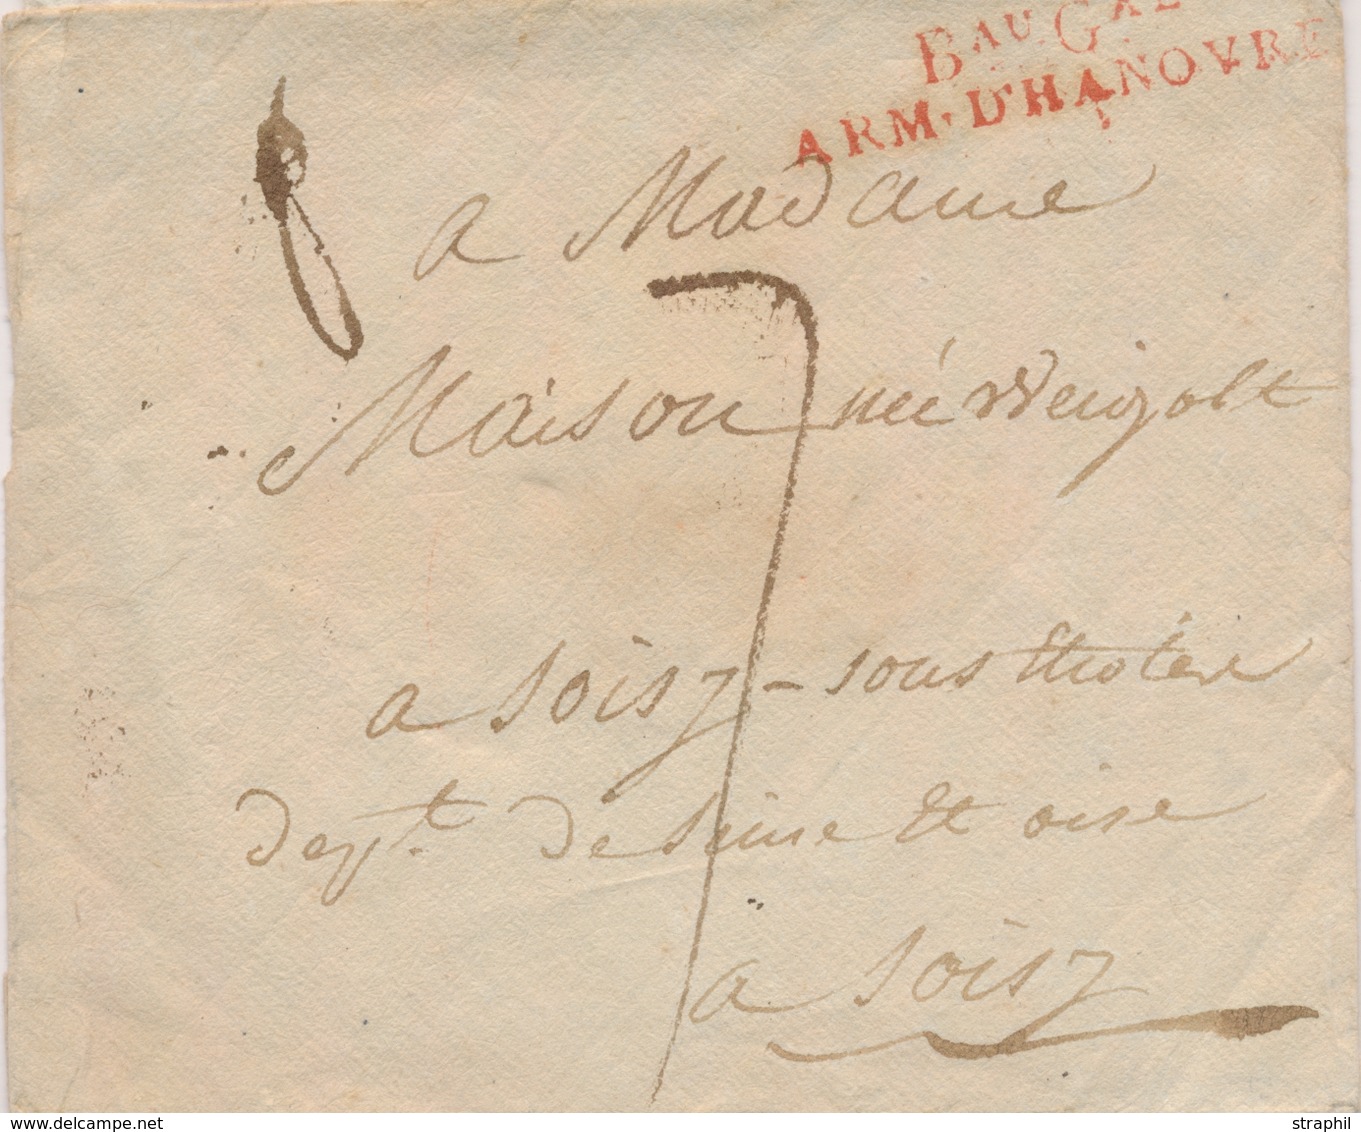 BAU GAL
ARM. D'HANOVRE
a Madame
7
Maison née Weigolt
a Soisy - sous Etiolere
dept. de Seine et oise
a Soisy
www.delcampe.net
straphil